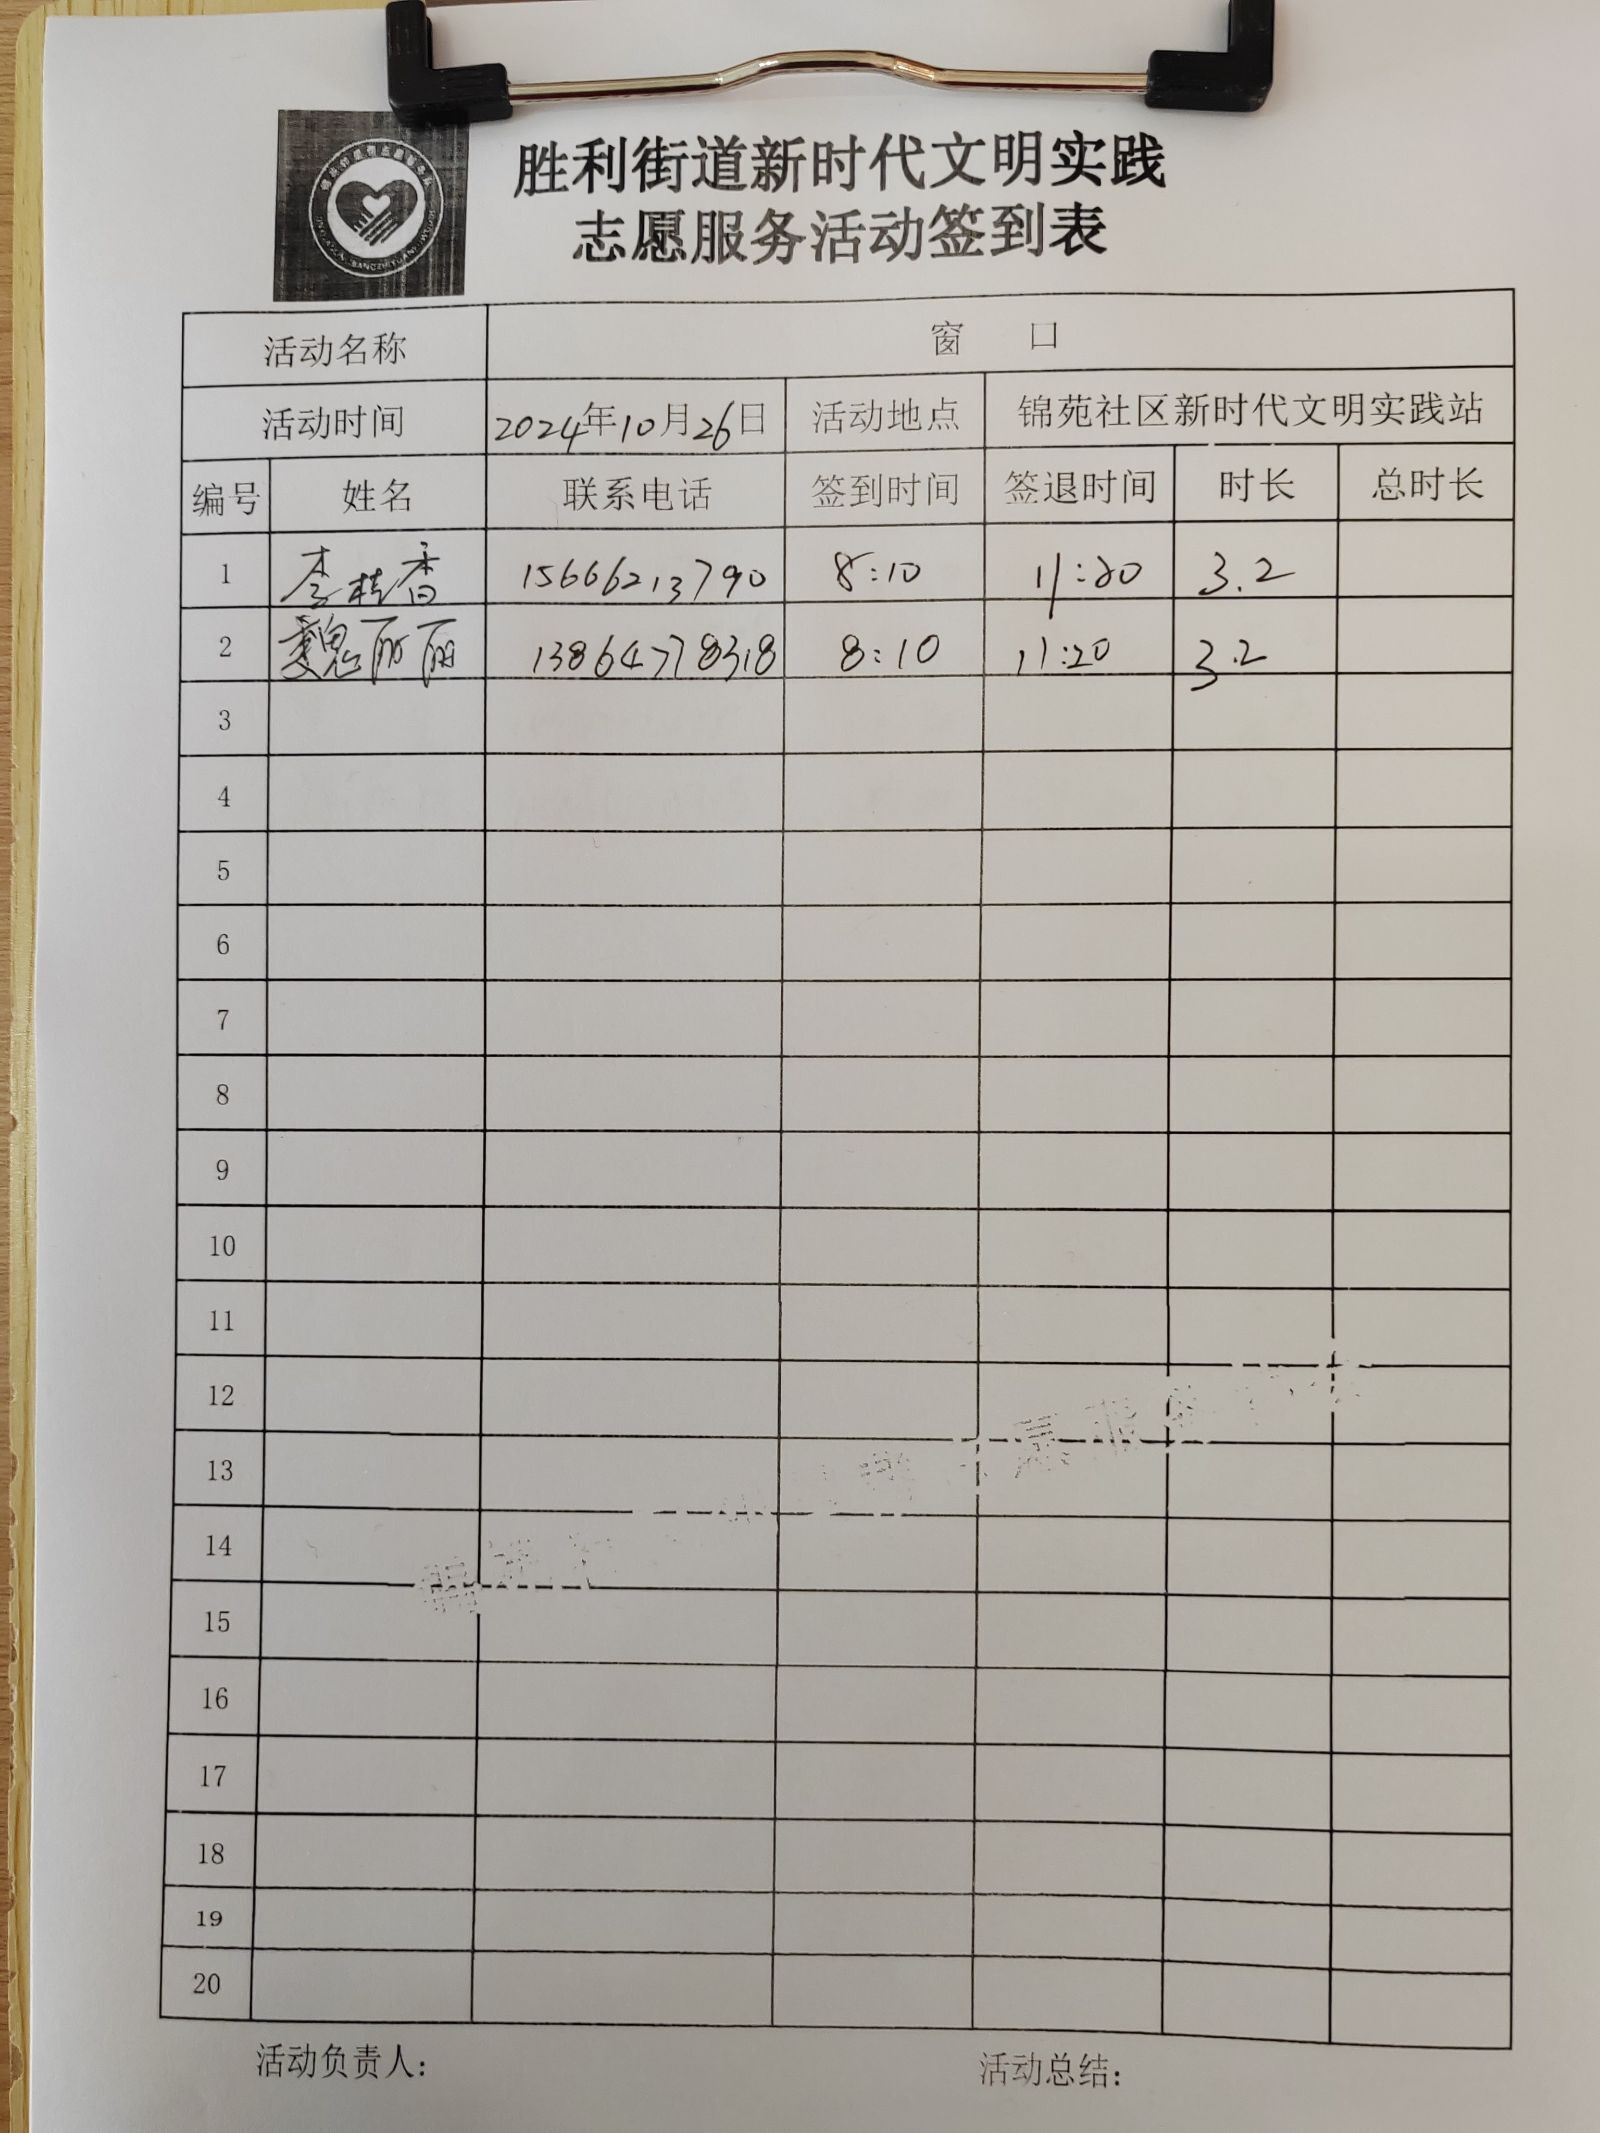 胜利街道新时代文明实践
志愿服务活动签到表
活动名称 窗 口
活动时间 2024年10月26日 活动地点 锦苑社区新时代文明实践站
编号 姓名 联系电话 签到时间 签退时间 时长 总时长
1 李桂香 15666213790 8:10 11:20 3.2
2 魏丽丽 13864778318 8:10 11:20 3.2
3
4
5
6
7
8
9
10
11
12
13
14
15
16
17
18
19
20
活动负责人: 活动总结: